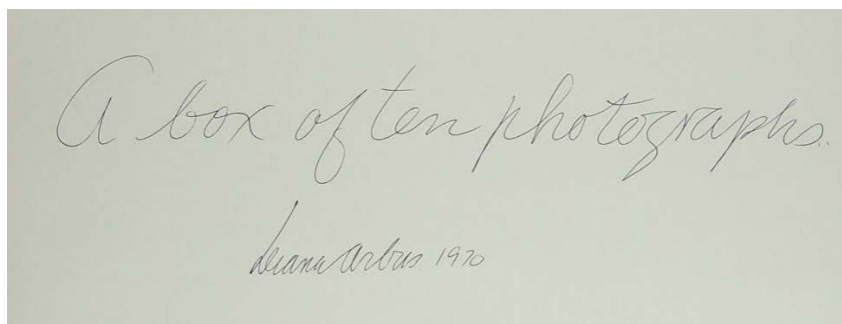 A box of ten photographs..
diane arbus. 1970